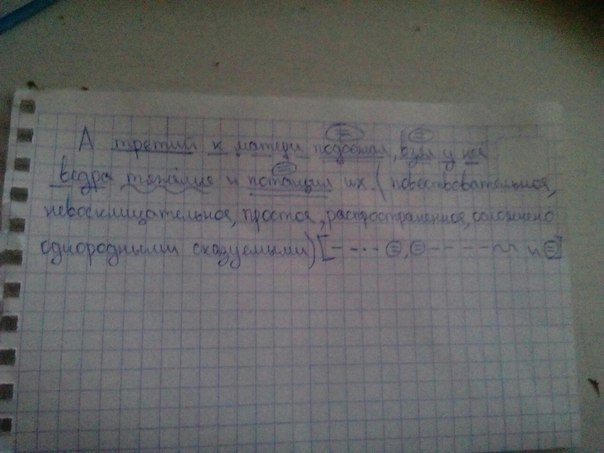 А третий к матери подбежал, взял у неё
ведра тяжёлые и потащил их. (повествовательное,
невосклицательное, простое, распространенное, осложнено
однородными сказуемыми) [- - - · ⊜, ⊜ - - - - ~~ и ⊜]